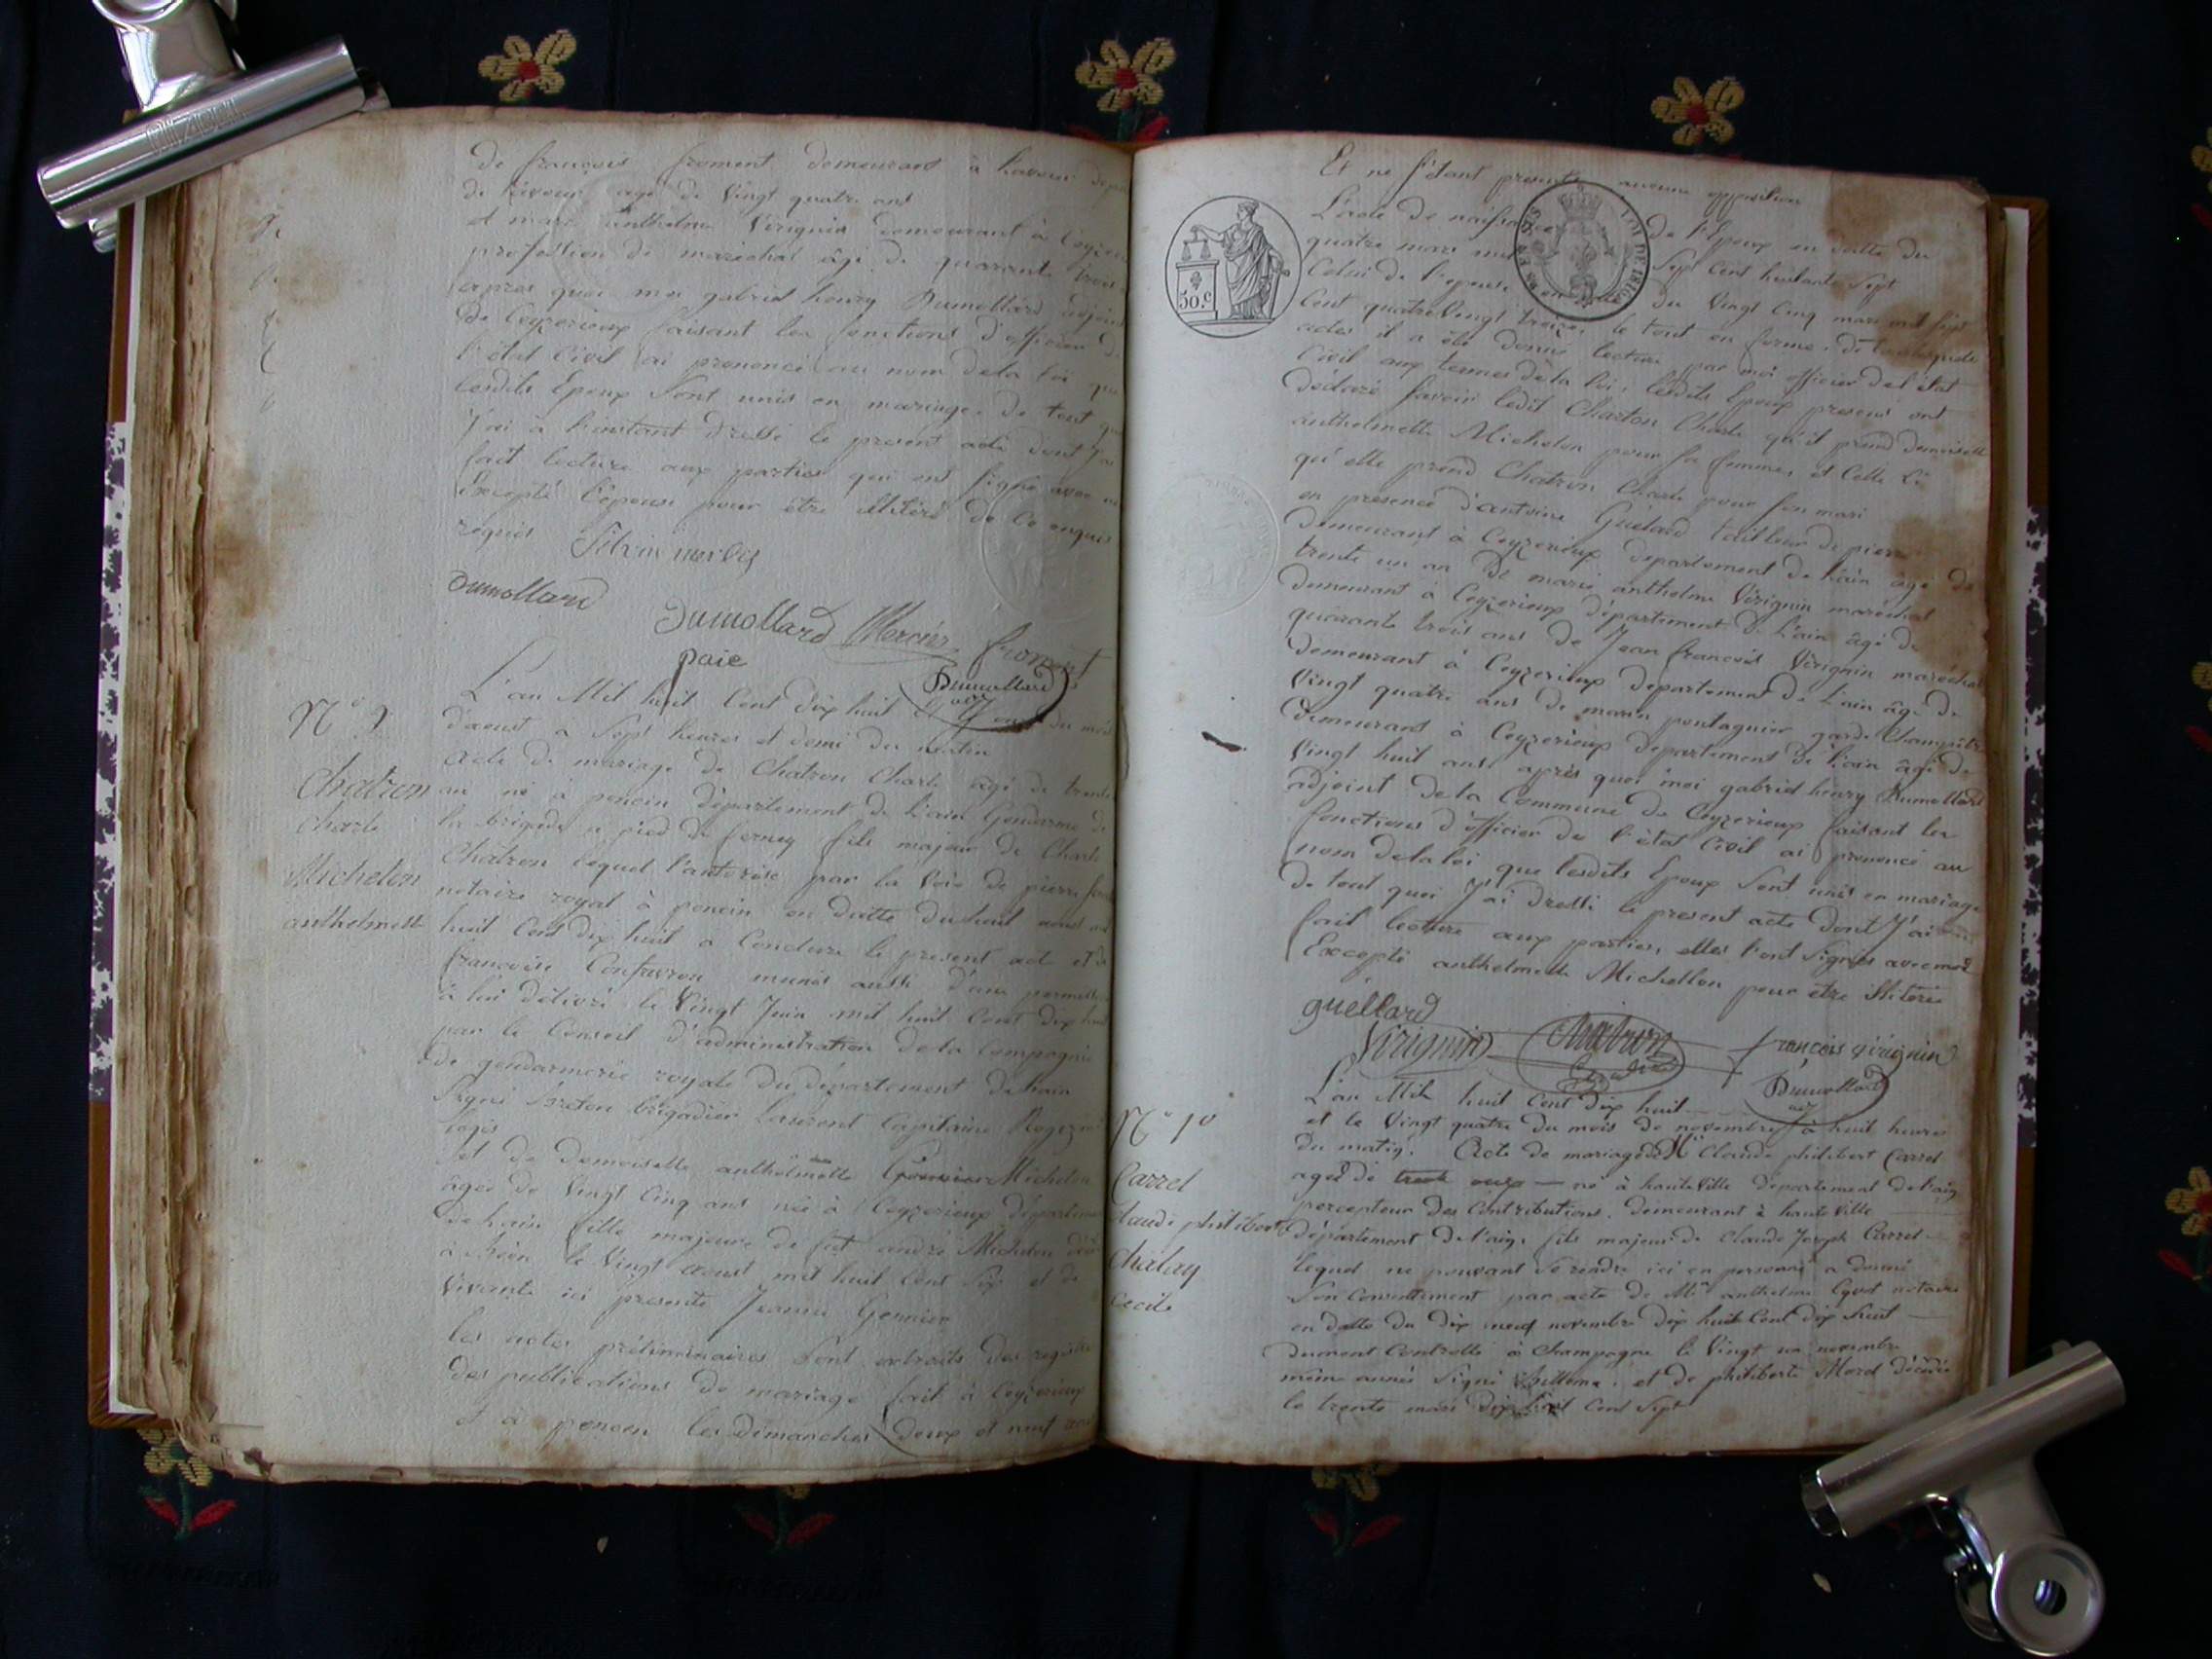 de françois froment demeurant à
de age de Vingt quatre ans
et marc anthelme Virignin demeurant à Ceyzerieu
profession de maréchal âgé de quarante trois
apres quoi moi gabriel henry Dumollard adjoint
de Ceyzerieux faisant les fonctions d'officier de
l'état Civil ai prononcé au nom de la loi que
lesdits Epoux Sont unis en mariage. de tout quoi
J'ai à l'instant dressé le present acte dont J'ai
fait lecture aux parties qui ont signé avec moi
Excepté l'épouse pour être illitéré de ce enquis
requis
Dumollard
Dumollard Mercier froment
paie
Dumollard
adj
N° 9
Chatron
Charle
Michelon
anthelmette
L'an Mil huit Cent dix huit et du mois
d'aoust a Sept heures et demi du matin
acte de mariage de Chatron Charle âgé de trente
an né à poncin département de l'ain Gendarme de
la brigade a pied de ferney fils majeur de Charle
Chatron lequel l'autorise par la Voie de pierre
notaire royal à poncin en datte du huit aoust mil
huit Cent dix huit a Conclure le present acte et de
françoise Confavron munis aussi d'une permission
à lui délivré le Vingt Juin mil huit Cent dix huit
par le Conseil d'administration de la Compagnie
de gendarmerie royale du département de l'ain
Signé breton brigadier laurent Capitaine
logis
et de demoiselle anthelmette Michelon
âgée de Vingt Cinq ans née à Ceyzerieux département
de l'ain fille majeure de fut andré Michelon
à le Vingt aoust mil huit Cent Six et de
Vivante ici presente Jeanne
les actes préliminaires Sont extraits des registres
des publications de mariage fait à Ceyzerieux
et à poncin les dimanches deux et neuf aoust
Et ne s'étant presenté aucune opposition
L'acte de naissance de l'Epoux en datte du
quatre mars mil Sept Cent huitante Sept
Celui de l'epouse en du Vingt Cinq mars mil Sept
Cent quatre Vingt treize, le tout en forme. de tous lesquels
actes il a été donné lecture par moi officier de l'état
Civil aux termes de la loi, lesdits Epoux presens ont
déclaré savoir ledit Charton Charle qu'il prend demoiselle
anthelmette Michelon pour sa femme, et Celle Ci
qu'elle prend Chatron Charle pour son mari
en presence d'antoine Guélard tailleur de pierre
demeurant à Ceyzerieux departement de l'ain âgé de
trente un an De marie anthelme Virignin maréchal
demeurant à Ceyzerieux département de l'ain âgé de
quarante trois ans de Jean françois Virignin maréchal
demeurant à Ceyzerieux departement de l'ain âgé de
Vingt quatre ans de pontagnier garde Champêtre
demeurant à Ceyzerieux departement de l'ain âgé de
Vingt huit ans après quoi moi gabriel henry Dumollard
adjoint de la Commune de Ceyzerieux faisant les
fonctions d'officier de l'état Civil ai prononcé au
nom de la loi que lesdits Epoux Sont unis en mariage
de tout quoi J'ai dressé le present acte dont J'ai
fait lecture aux parties, elles l'ont Signés avec moi
Excepté anthelmette Michellon pour être illiterée
guellard
Virignin Chatron françois virignin
Dumollard
adj
50.c
N° 10
Carrel
Claude philibert
Chalay
Cecile
L'an Mil huit Cent Dix huit
et le Vingt quatre du mois de novembre à huit heures
du matin. Acte de mariage de Mr Claude philibert Carrel
agé de né à hauteVille departement de l'ain
percepteur des Contributions. demeurant à hauteVille
département de l'ain. fils majeur de Claude Joseph Carrel
lequel ne pouvant Se rendre ici en personne a donné
Son Consentement par acte de Me anthelme notaire
en datte du dix neuf novembre dix huit Cent dix huit
dument Controllé à Champagne le Vingt un novembre
meme année Signé et de philiberte Morel décédée
le trente mars dix huit Cent Sept